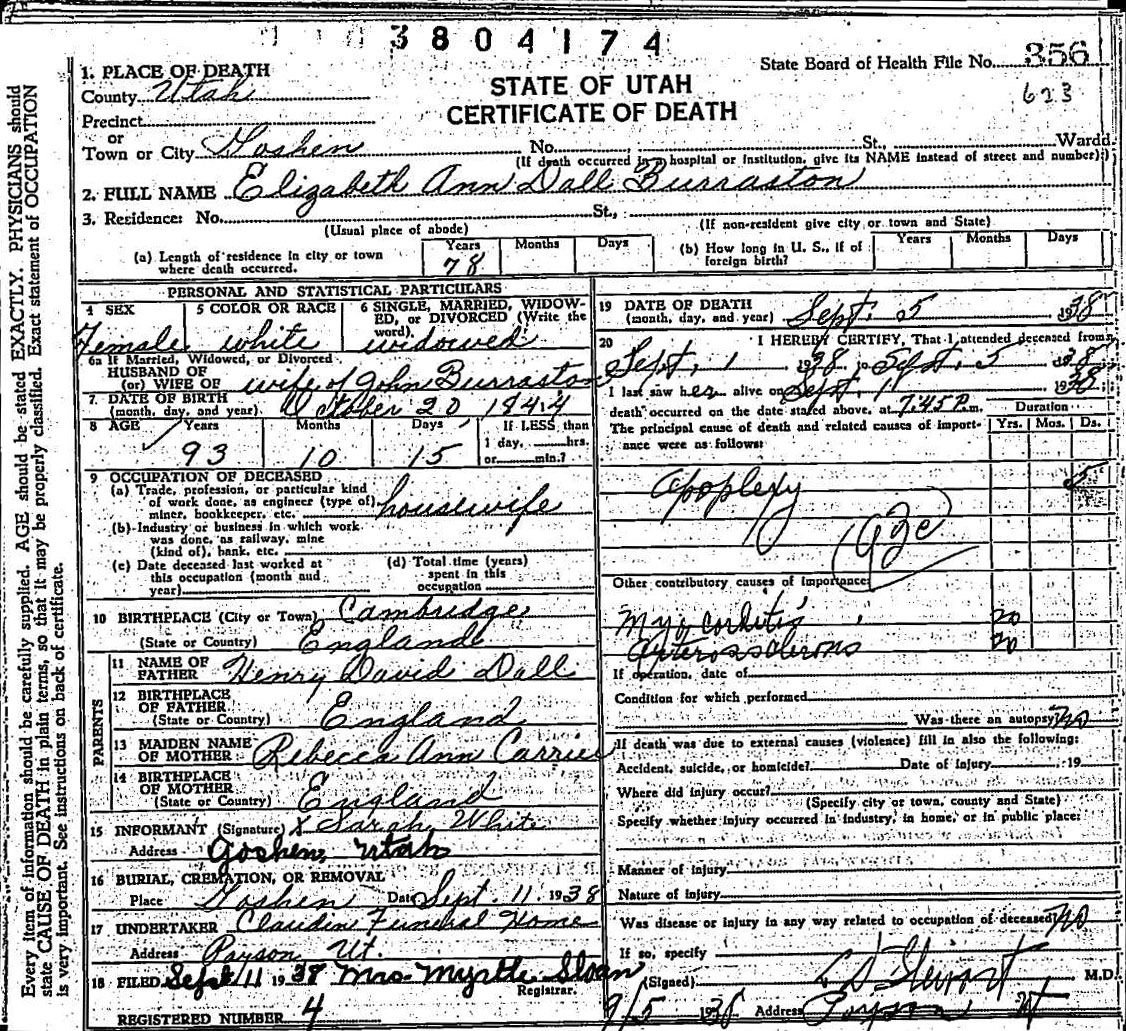 3804174
State Board of Health File No. 356
623
STATE OF UTAH
CERTIFICATE OF DEATH
1. PLACE OF DEATH
County Utah
Precinct
or
Town or City Goshen No. St., Wardd
(If death occurred in hospital or institution, give its NAME instead of street and number)
2. FULL NAME Elizabeth Ann Dall Burraston
3. Residence: No. St.,
(Usual place of abode) (If non-resident give city or town and State)
(a) Length of residence in city or town where death occurred. Years 78 Months Days
(b) How long in U. S., if of foreign birth? Years Months Days
PERSONAL AND STATISTICAL PARTICULARS
4 SEX Female
5 COLOR OR RACE white
6 SINGLE, MARRIED, WIDOWED, or DIVORCED (Write the word) widowed
6a If Married, Widowed, or Divorced
HUSBAND OF
(or) WIFE OF wife of John Burraston
7 DATE OF BIRTH
(month, day, and year) October 20 1844
8 AGE Years 93 Months 10 Days 15 If LESS than 1 day, hrs. or min.?
9 OCCUPATION OF DECEASED
(a) Trade, profession, or particular kind of work done, as engineer (type of) miner, bookkeeper, etc. housewife
(b) Industry or business in which work was done, as railway, mine (kind of), bank, etc.
(c) Date deceased last worked at this occupation (month and year)
(d) Total time (years) spent in this occupation
10 BIRTHPLACE (City or Town) Cambridge
(State or Country) England
PARENTS
11 NAME OF FATHER Henry David Dall
12 BIRTHPLACE OF FATHER
(State or Country) England
13 MAIDEN NAME OF MOTHER Rebecca Ann Carrier
14 BIRTHPLACE OF MOTHER
(State or Country) England
15 INFORMANT (Signature) x Sarah White
Address Goshen, Utah
16 BURIAL, CREMATION, OR REMOVAL
Place Goshen Date Sept. 11 1938
17 UNDERTAKER Claudin Funeral Home
Address Payson Ut.
18 FILED Sept 11 1938 Mrs Myrtle Sloan
Registrar.
REGISTERED NUMBER 4
19 DATE OF DEATH
(month, day, and year) Sept. 5 1938
20 I HEREBY CERTIFY, That I attended deceased from
Sept. 1 1938, Sept. 5 1938
I last saw her alive on Sept. 1 1938
death occurred on the date stated above, at 7:45 P.m.
Duration
The principal cause of death and related causes of importance were as follows: Yrs. Mos. Ds.
Apoplexy 5
Age
Other contributory causes of importance:
Myocorditis 20
Arterossclerosis 20
If operation, date of
Condition for which performed
Was there an autopsy? No
If death was due to external causes (violence) fill in also the following:
Accident, suicide, or homicide? Date of injury 19
Where did injury occur?
(Specify city or town, county and State)
Specify whether injury occurred in industry, in home, or in public place:
Manner of injury
Nature of injury
Was disease or injury in any way related to occupation of deceased? No
If so, specify
(Signed) L D Stewart M.D.
9/5 1938 Address Payson Ut
Every item of information should be carefully supplied. AGE should be stated EXACTLY. PHYSICIANS should
state CAUSE OF DEATH in plain terms, so that it may be properly classified. Exact statement of OCCUPATION
is very important. See instructions on back of certificate.